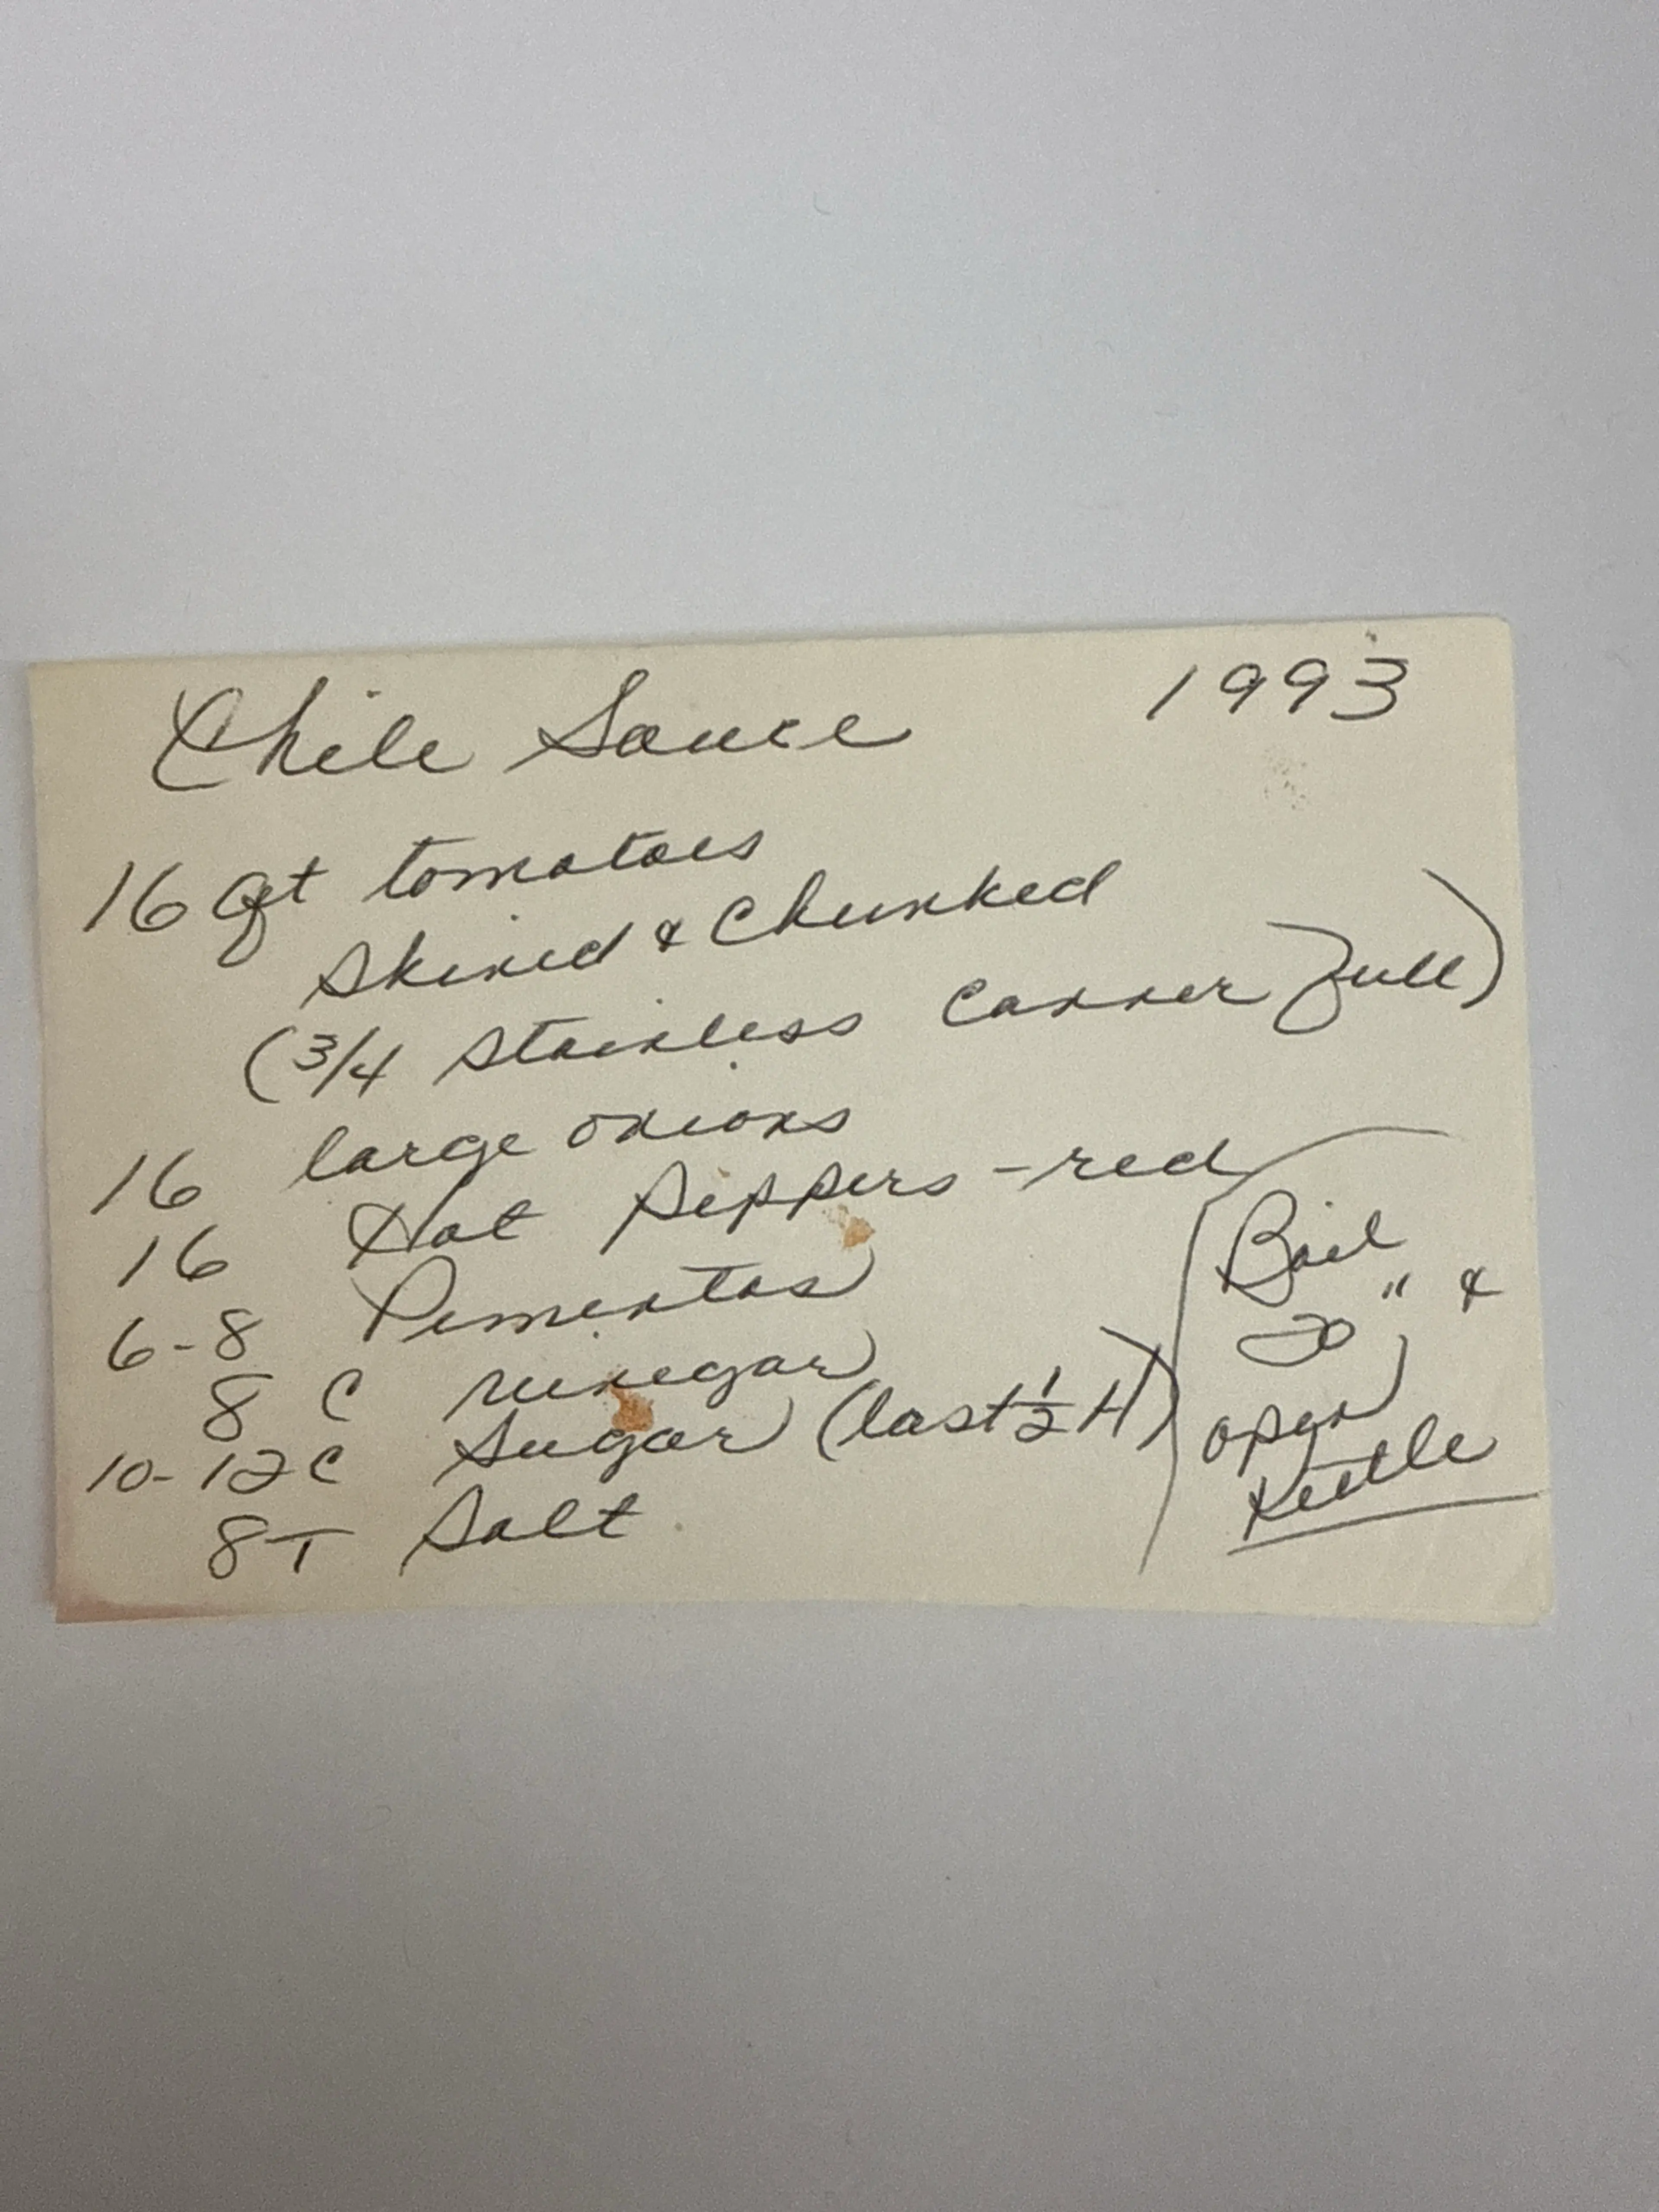 Chile Sauce 1993
16 Qt tomatoes
Skined & Chunked
(3/4 Stainless Canner full)
16 large onions
16 Hot Peppers - red
6-8 Pimentos
8 C vinegar
10-12 C Sugar (last 1/2 H)
8 T Salt
Boil
20" &
open
Kettle